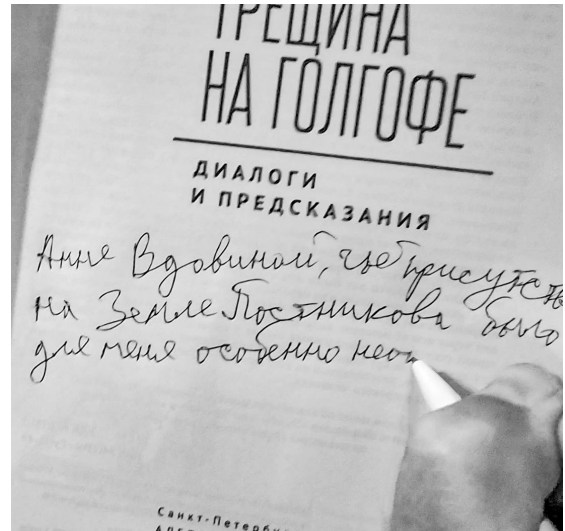 ТРЕЩИНА
НА ГОЛГОФЕ
ДИАЛОГИ
И ПРЕДСКАЗАНИЯ
Анне Вдовиной, чьё присутств
на Земле Постникова было
для меня особенно нео
Санкт-Петербу